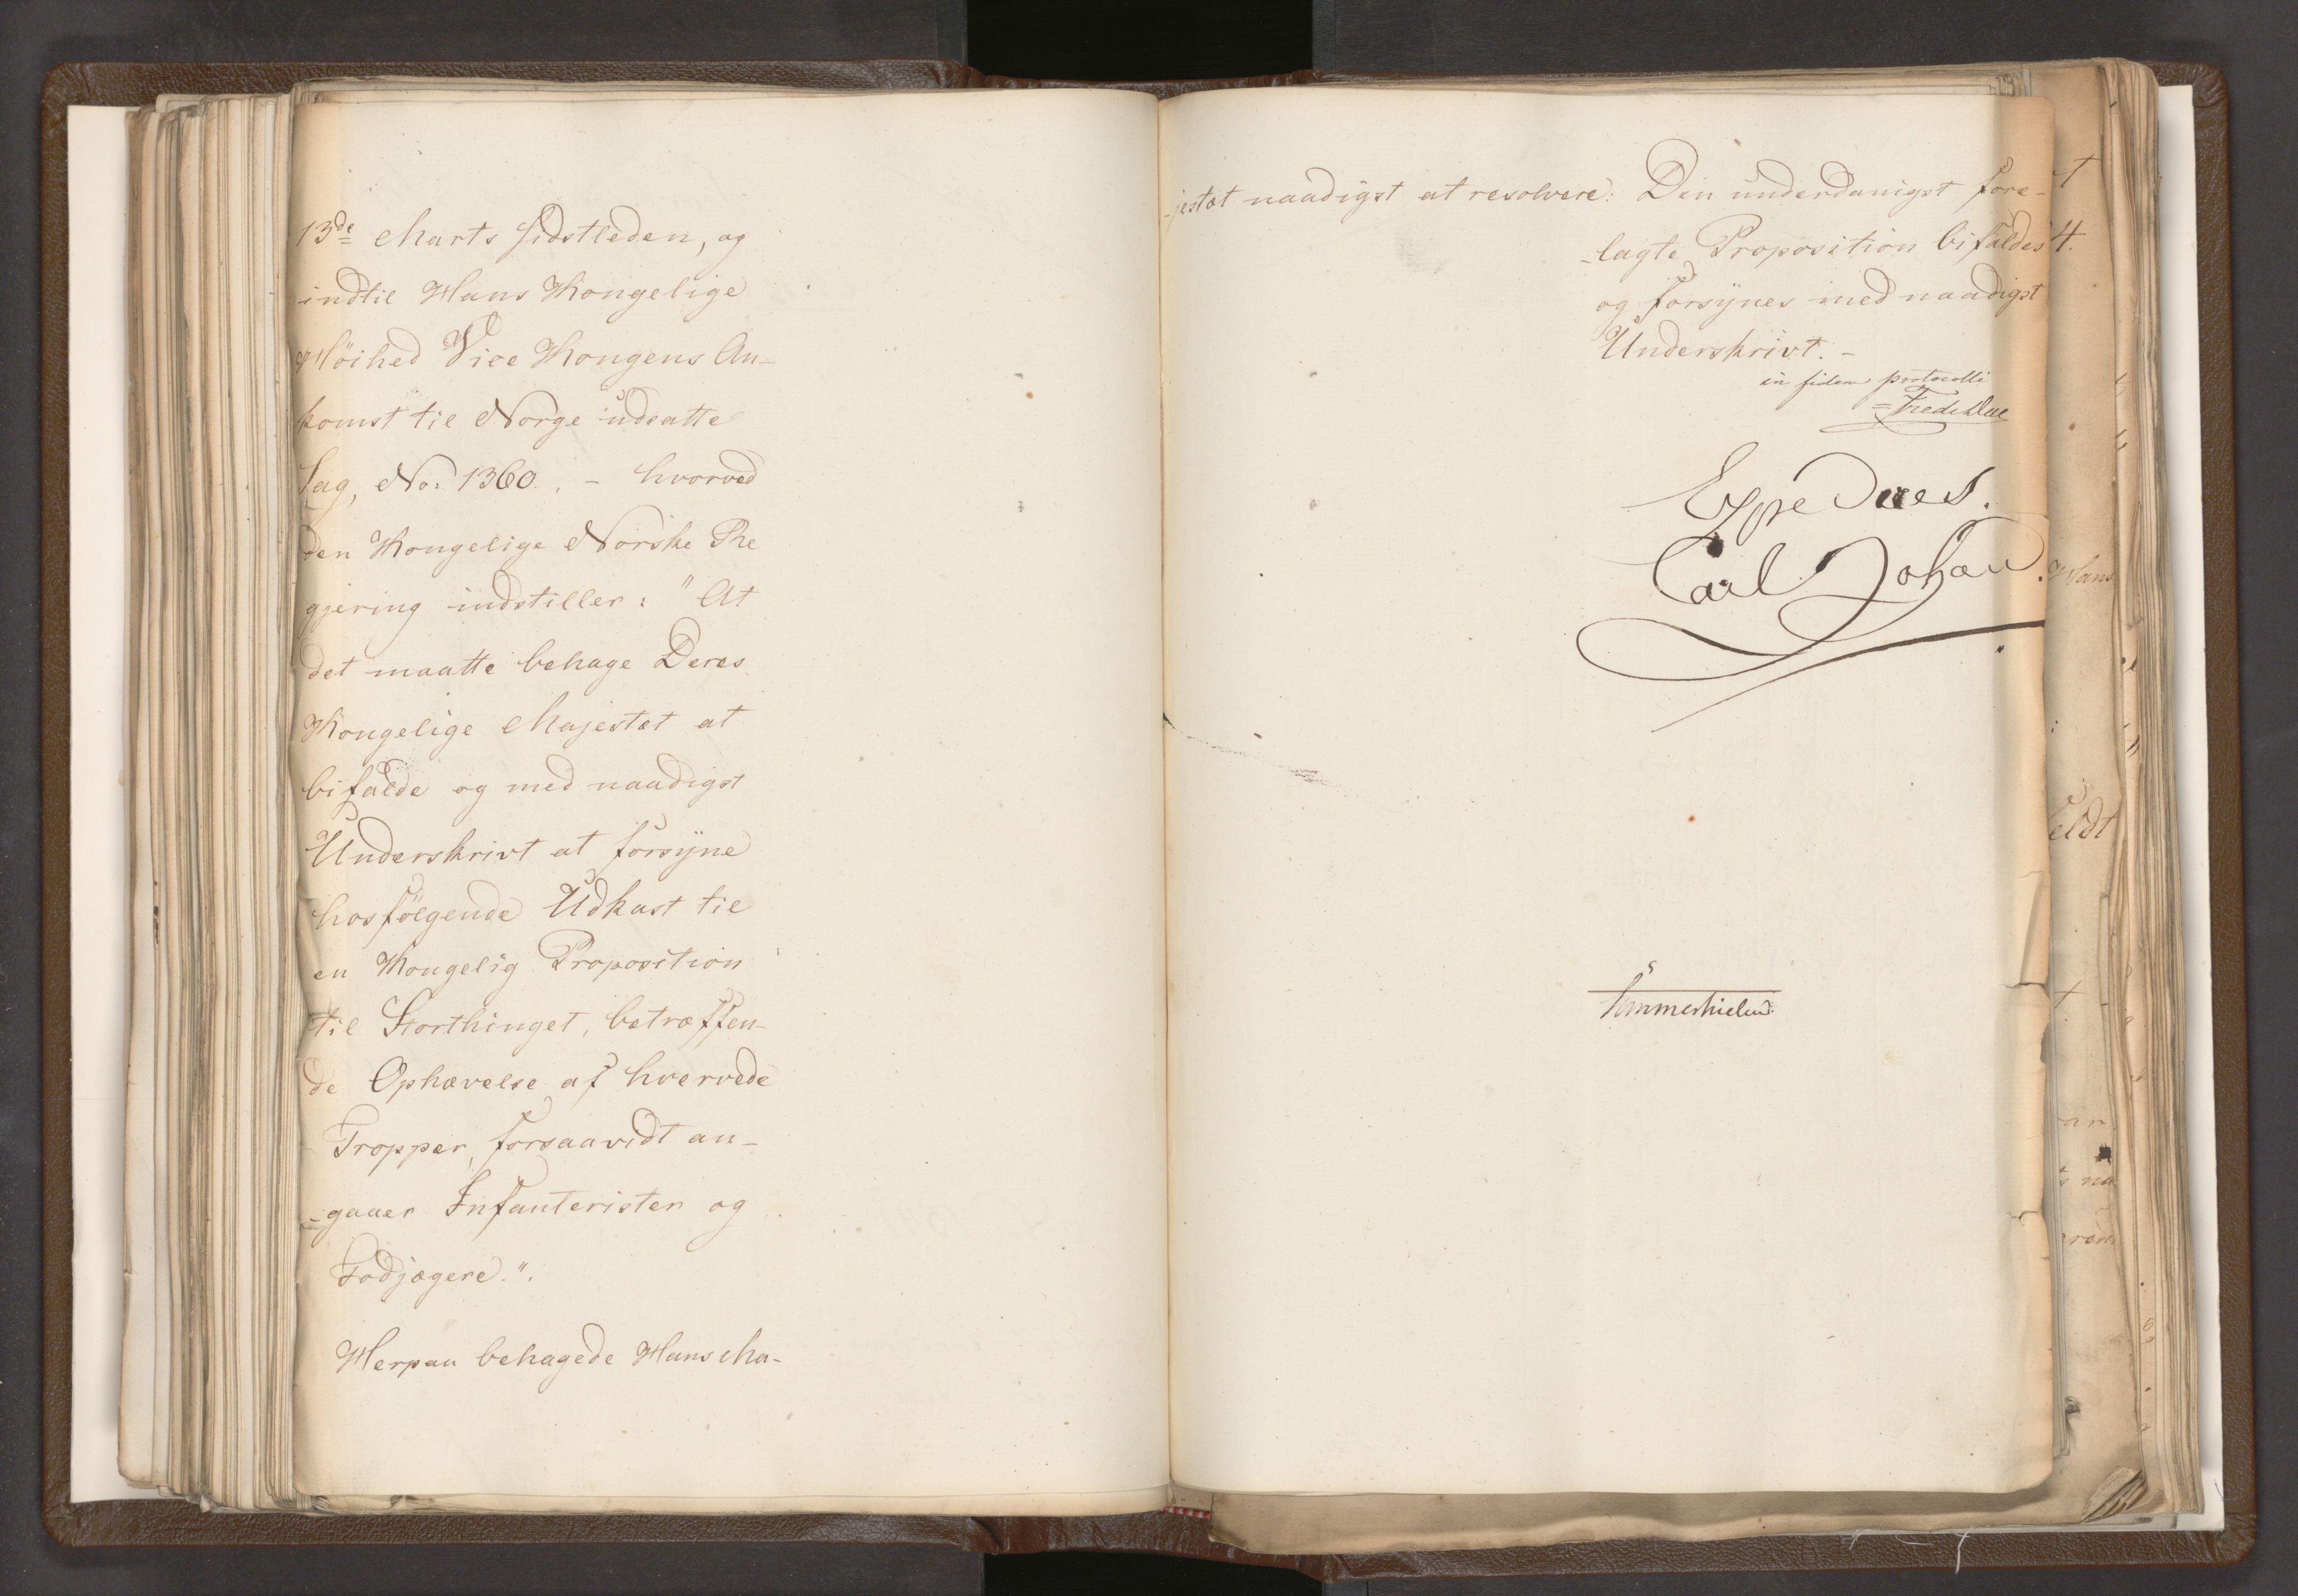 13de Marts sidstleden, og
indtil Hans Kongelige
Höihed Vice Kongens An-
komst til Norge udsatte
Sag, No: 1360. - hvorved
den Kongelige Norske Re
gjering indstiller: "At
det maatte behage Deres
Kongelige Majestæt at
bifalde og med naadigst
Underskrivt at forsÿne
hosfölgende Udkast til
en Kongelig Proposition
til Storthinget, betræffen-
de Ophævelse af hvervede
Tropper, forsaavidt an-
-gaaer Infanterister og
Fodjægere.".
Herpaa behagede Hans Ma-
-jestæt naadigst at resolvere: Den underdanigst fore-
-lagte Proposition bifaldes
og forsÿnes med naadigst
Underskrivt. -
in fidem protocolli
Fredr Due
Expedueres.
Carl Johan
Sommerhielm.
Hans
eldt